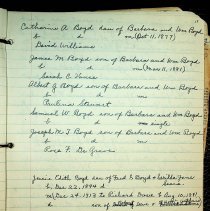 Catharine A. Boyd dau of Barbara and Wm Boyd
b d m (Oct 11, 1877)
David Williams
James M Boyd son of Barbara and Wm Boyd
b d m (Mar 11, 1881)
Sarah C
Albert J Boyd son of Barbara and Wm Boyd
b d m
Paulina Stewart
Samuel W. Boyd son of Barbara and Wm Boyd
b d m single
Joseph M. J Boyd son of Barbara and Wm Boyd
b d m
Rosa F. De
Jessie Edith Boyd dau of Fred S Boyd
b Dec 22, 1894 d
m Dec 24, 1913 to Richard b Aug 10, 1891
d son of